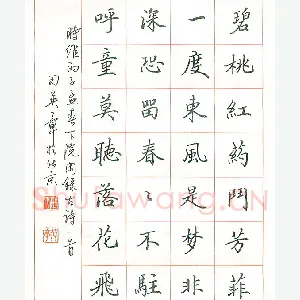 碧桃紅药鬥芳菲
一度東風是梦非
深恐留春春不駐
呼童莫聽落花飛
時維初子孟春下浣閑錄古詩一首
田英章於北京
Shufawang.CN